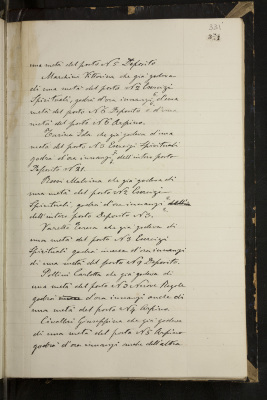 una metà del posto N. 5 Deposito
Marchini Vittorina che già godeva
di una metà del posto N. 2 Esercizi
Spirituali, godrà d'ora innanzi d'una
metà del posto N. 5 Deposito e d'una
metà del posto N. 6
Farina Ida che già godeva d'una
metà del posto N. 3 Esercizi Spirituali
godrà d'ora innanzi dell'intero posto
Deposito N. 21.
Malvina che già godeva di
una metà del posto N. 2 Esercizi
Spirituali, godrà d'ora innanzi
dell'intero posto Deposito N. 3.
Teresa che già godeva di
una metà del posto N. 3 Esercizi
Spirituali godrà d'ora innanzi
di una metà del posto N. 9 Deposito.
Pollini Carlotta che già godeva di
una metà del posto N. 3 Nuove Regole
godrà d'ora innanzi anche di
una metà del posto N. 4
Giuseppina che già godeva
di una metà del posto N. 5
godrà d'ora innanzi anche dell'altra